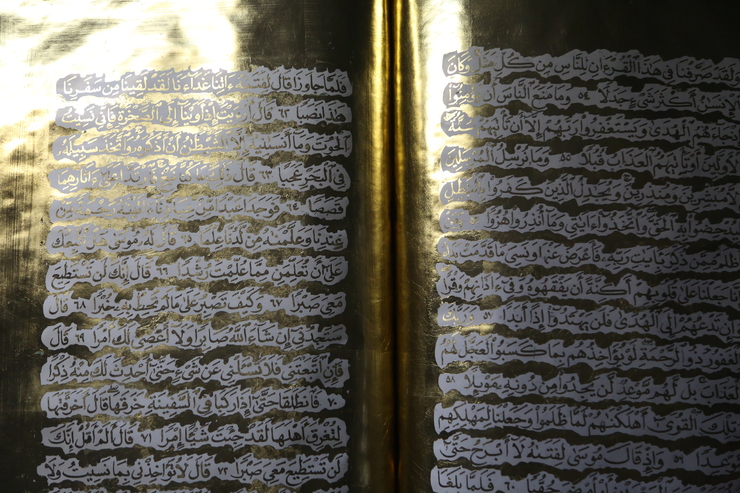 ولقد صرفنا في هذا القرءان للناس من كل مثل وكان
الإنسن أكثر شيء جدلا ٥٤ وما منع الناس أن يؤمنوا
جاءهم الهدى ويستغفروا ربهم إلا أن تأتيهم سنة
الأولين أو يأتيهم العذاب قبلا ٥٥ وما نرسل المرسلين
مبشرين ومنذرين ويجدل الذين كفروا بالبطل
ليدحضوا به الحق واتخذوا ءايتي وما أنذروا هزوا ٥٦
أظلم ممن ذكر بءايت ربه فأعرض عنها ونسي ما قدمت يداه
إنا جعلنا على قلوبهم أكنة أن يفقهوه وفي ءاذانهم وقرا
وإن تدعهم إلى الهدى فلن يهتدوا إذا أبدا ٥٧ وربك
الغفور ذو الرحمة لو يؤاخذهم بما كسبوا لعجل لهم
العذاب بل لهم موعد لن يجدوا من دونه موئلا ٥٨
وتلك القرى أهلكنهم لما ظلموا وجعلنا لمهلكهم
موعدا ٥٩ وإذ قال موسى لفتىه لا أبرح حتى
٦٠ فلما بلغا
فلما جاوزا قال لفتىه ءاتنا غداءنا لقد لقينا من سفرنا
هذا نصبا ٦٢ قال أرءيت إذ أوينا إلى الصخرة فإني نسيت
الحوت وما أنسىنيه إلا الشيطن أن أذكره واتخذ سبيله
في البحر عجبا ٦٣ قال ذلك ما كنا نبغ فارتدا على ءاثارهما
قصصا ٦٤ فوجدا عبدا من عبادنا ءاتينه رحمة من
عندنا وعلمنه من لدنا علما ٦٥ قال له موسى هل أتبعك
على أن تعلمن مما علمت رشدا ٦٦ قال إنك لن تستطيع
معي صبرا ٦٧ وكيف تصبر على ما لم تحط به خبرا ٦٨ قال
ستجدني إن شاء الله صابرا ولا أعصي لك أمرا ٦٩ قال
فإن اتبعتني فلا تسءلني عن شيء حتى أحدث لك منه ذكرا
٧٠ فانطلقا حتى إذا ركبا في السفينة خرقها قال أخرقتها
لتغرق أهلها لقد جئت شيءا إمرا ٧١ قال ألم أقل إنك
لن تستطيع معي صبرا ٧٢ قال لا تؤاخذني بما نسيت ولا